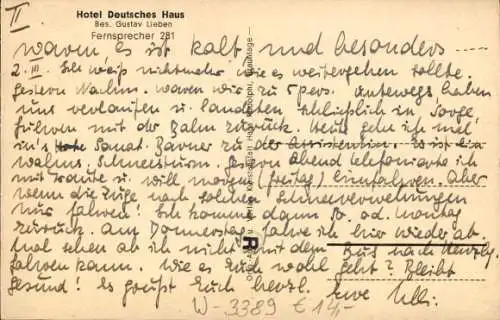 II
Hotel Deutsches Haus
Bes. Gustav Lieben
Fernsprecher 281
waren. Es ist kalt und besonders
2. III. Ich weiß nicht mehr wie es weitergehen sollte.
gestern Nachm. waren wie zu 5 pers. unterwegs haben
uns verlaufen u. landeten schließlich in "Sorge"
fuhren mit der Bahn zurück. Heute gehe ich mal
in's Sanat. zu der
Schneesturm. Gestern Abend telefonierte ich
mit Traute u. will morgen (Freitag) hinfahren. Aber
wenn die Züge nach solchen Schneeverwehungen
nur fahren! Ich komme dann So. od. Montag
zurück. Am Donnerstag fahre ich hier wieder ab.
Mal sehen ob ich nicht mit dem Bus nach
fahren kann. Wie es Euch wohl geht? Bleibt
gesund! Es grüßt Euch herzl. Eure Ulli.
R
W-3389 € 14,-